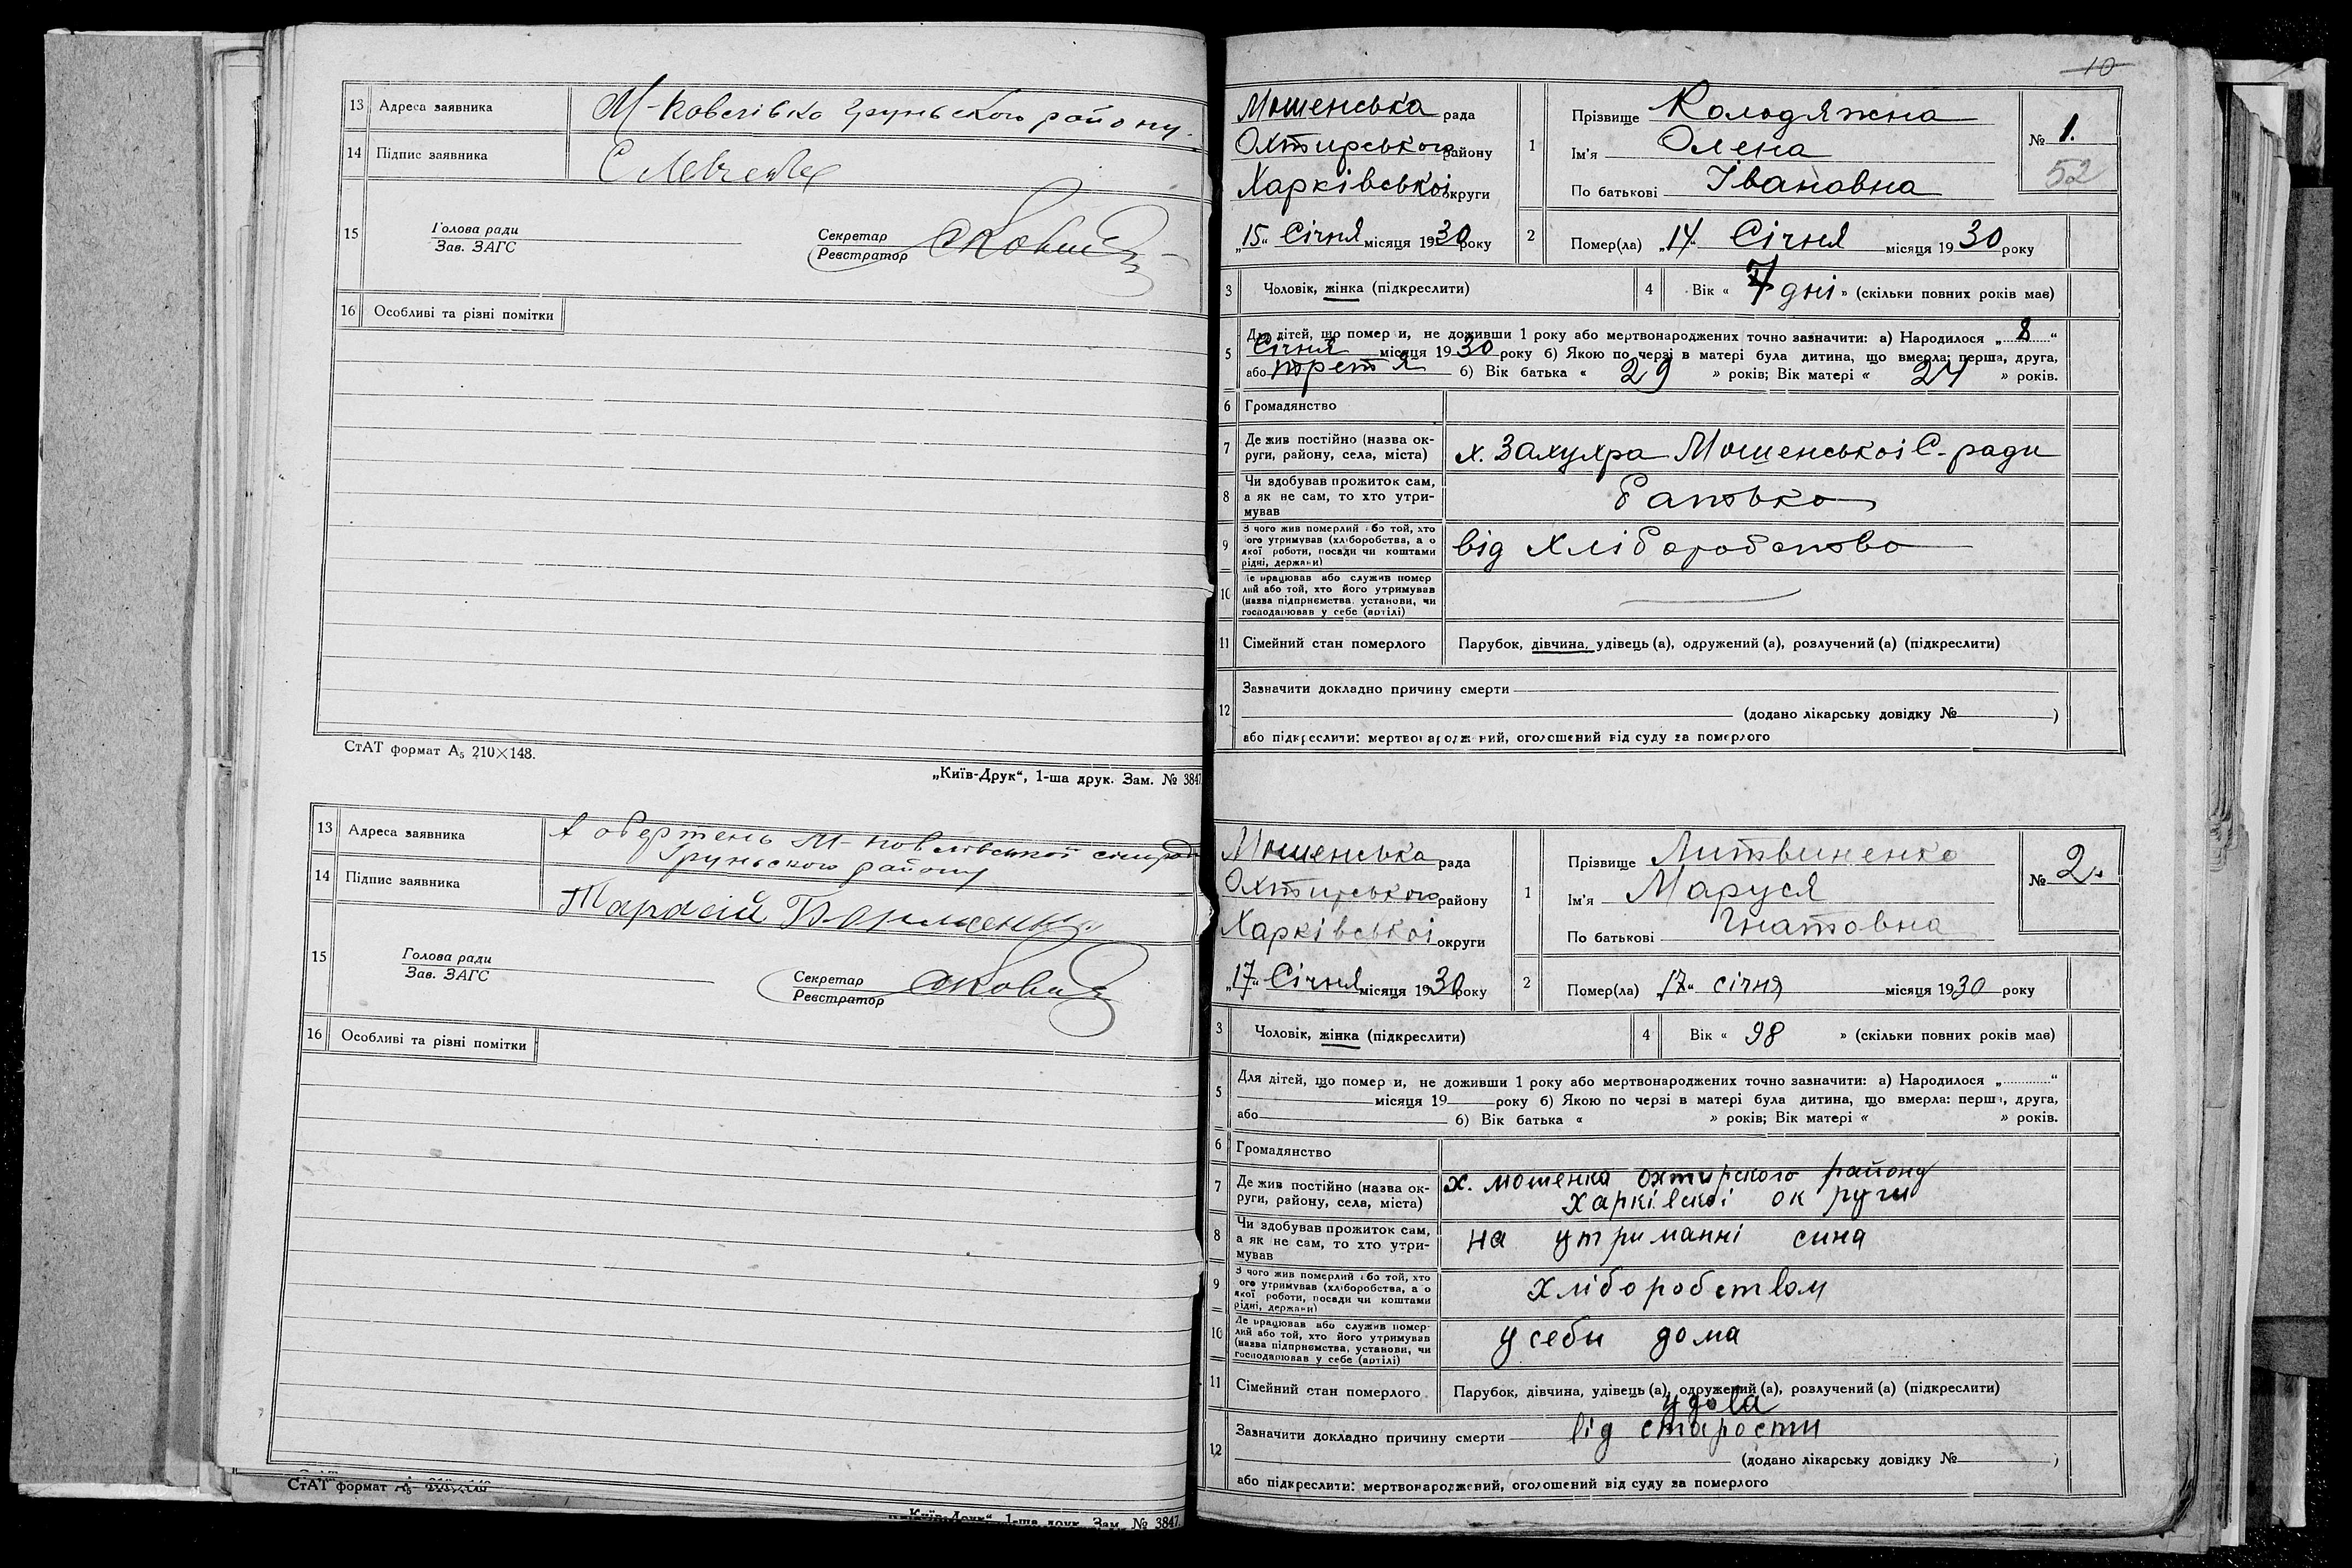 13 Адреса заявника М-Ковслівка Груньського району.
14 Підпис заявника
15 Голова ради
Зав. ЗАГС
Секретар
Реєстратор
16 Особливі та різні помітки
СтАТ формат А5 210×148.
„Київ-Друк“, 1-ша друк. Зам. № 3847
13 Адреса заявника х Обертень М-
Груньского району
14 Підпис заявника Тарасій
15 Голова ради
Зав. ЗАГС
Секретар
Реєстратор
16 Особливі та різні помітки
СтАТ формат А5 210×148
„Київ-Друк“, 1-ша друк. Зам. № 3847
10
Мошенська рада
Охтирського району
Харківської округи
„15“ Січня місяця 1930 року
1 Прізвище Колодяжна
Ім'я Олена
По батькові Івановна
№ 1.
52
2 Помер(ла) „14“ Січня місяця 1930 року
3 Чоловік, жінка (підкреслити)
4 Вік « 7 дні » (скільки повних років має)
5 Для дітей, що помер и, не доживши 1 року або мертвонароджених точно зазначити: а) Народилося „8“
Січня місяця 1930 року б) Якою по черзі в матері була дитина, що вмерла: перша, друга,
або третя б) Вік батька « 29 » років; Вік матері « 24 » років.
6 Громадянство
7 Де жив постійно (назва округи, району, села, міста) х. Залухра Мошенської С. ради
8 Чи здобував прожиток сам, а як не сам, то хто утримував Батько
9 З чого жив померлий або той, хто ого утримував (хліборобства, а о якої роботи, посади чи коштами рідні, держави) від Хліборобство
10 Де працював або служив помер лий або той, хто його утримував (назва підприємства, установи, чи господарював у себе (артілі)
11 Сімейний стан померлого Парубок, дівчина, удівець (а), одружений (а), розлучений (а) (підкреслити)
12 Зазначити докладно причину смерти
(додано лікарську довідку № )
або підкреслити: мертвонароджений, оголошений від суду за померлого
Мошенська рада
Охтирського району
Харківської округи
„17“ Січня місяця 1930 року
1 Прізвище Литвиненко
Ім'я Маруся
По батькові Гнатовна
№ 2.
2 Помер(ла) „17“ січня місяця 1930 року
3 Чоловік, жінка (підкреслити)
4 Вік « 98 » (скільки повних років має)
5 Для дітей, що помер и, не доживши 1 року або мертвонароджених точно зазначити: а) Народилося „ “
місяця 19 року б) Якою по черзі в матері була дитина, що вмерла: перша, друга,
або б) Вік батька « » років; Вік матері « » років.
6 Громадянство
7 Де жив постійно (назва округи, району, села, міста) х. мошенка охтирского району
Харківскої округи
8 Чи здобував прожиток сам, а як не сам, то хто утримував на утриманні сина
9 З чого жив померлий або той, хто ого утримував (хліборобства, а о якої роботи, посади чи коштами рідні, держави) хліборобством
10 Де працював або служив помер лий або той, хто його утримував (назва підприємства, установи, чи господарював у себе (артілі) у себи дома
11 Сімейний стан померлого Парубок, дівчина, удівець (а), одружений (а), розлучений (а) (підкреслити)
удова
12 Зазначити докладно причину смерти від старости
(додано лікарську довідку № )
або підкреслити: мертвонароджений, оголошений від суду за померлого